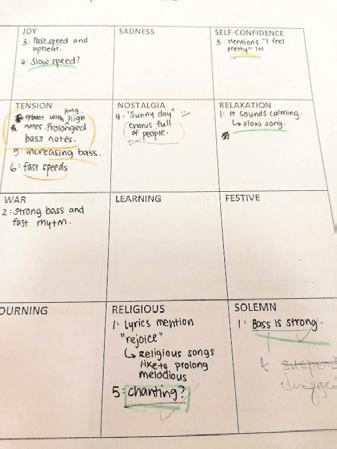 JOY
3: Fast speed and
upbeat.
4: Slow speed?
SADNESS
SELF-CONFIDENCE
3: Mentions "I feel
pretty" lol
TENSION
long
with high
notes. Prolonged
bass notes.
5: increasing bass.
6: fast speeds
NOSTALGIA
4: "Sunny day"
chorus full
of people.
RELAXATION
1: It sounds calming.
↳ slow song.
WAR
2: strong bass and
fast rhytm.
LEARNING
FESTIVE
OURNING
RELIGIOUS
1: Lyrics mention
"rejoice"
↳ Religious songs
like to prolong
melodious
5: chanting?
SOLEMN
1: Bass is strong.